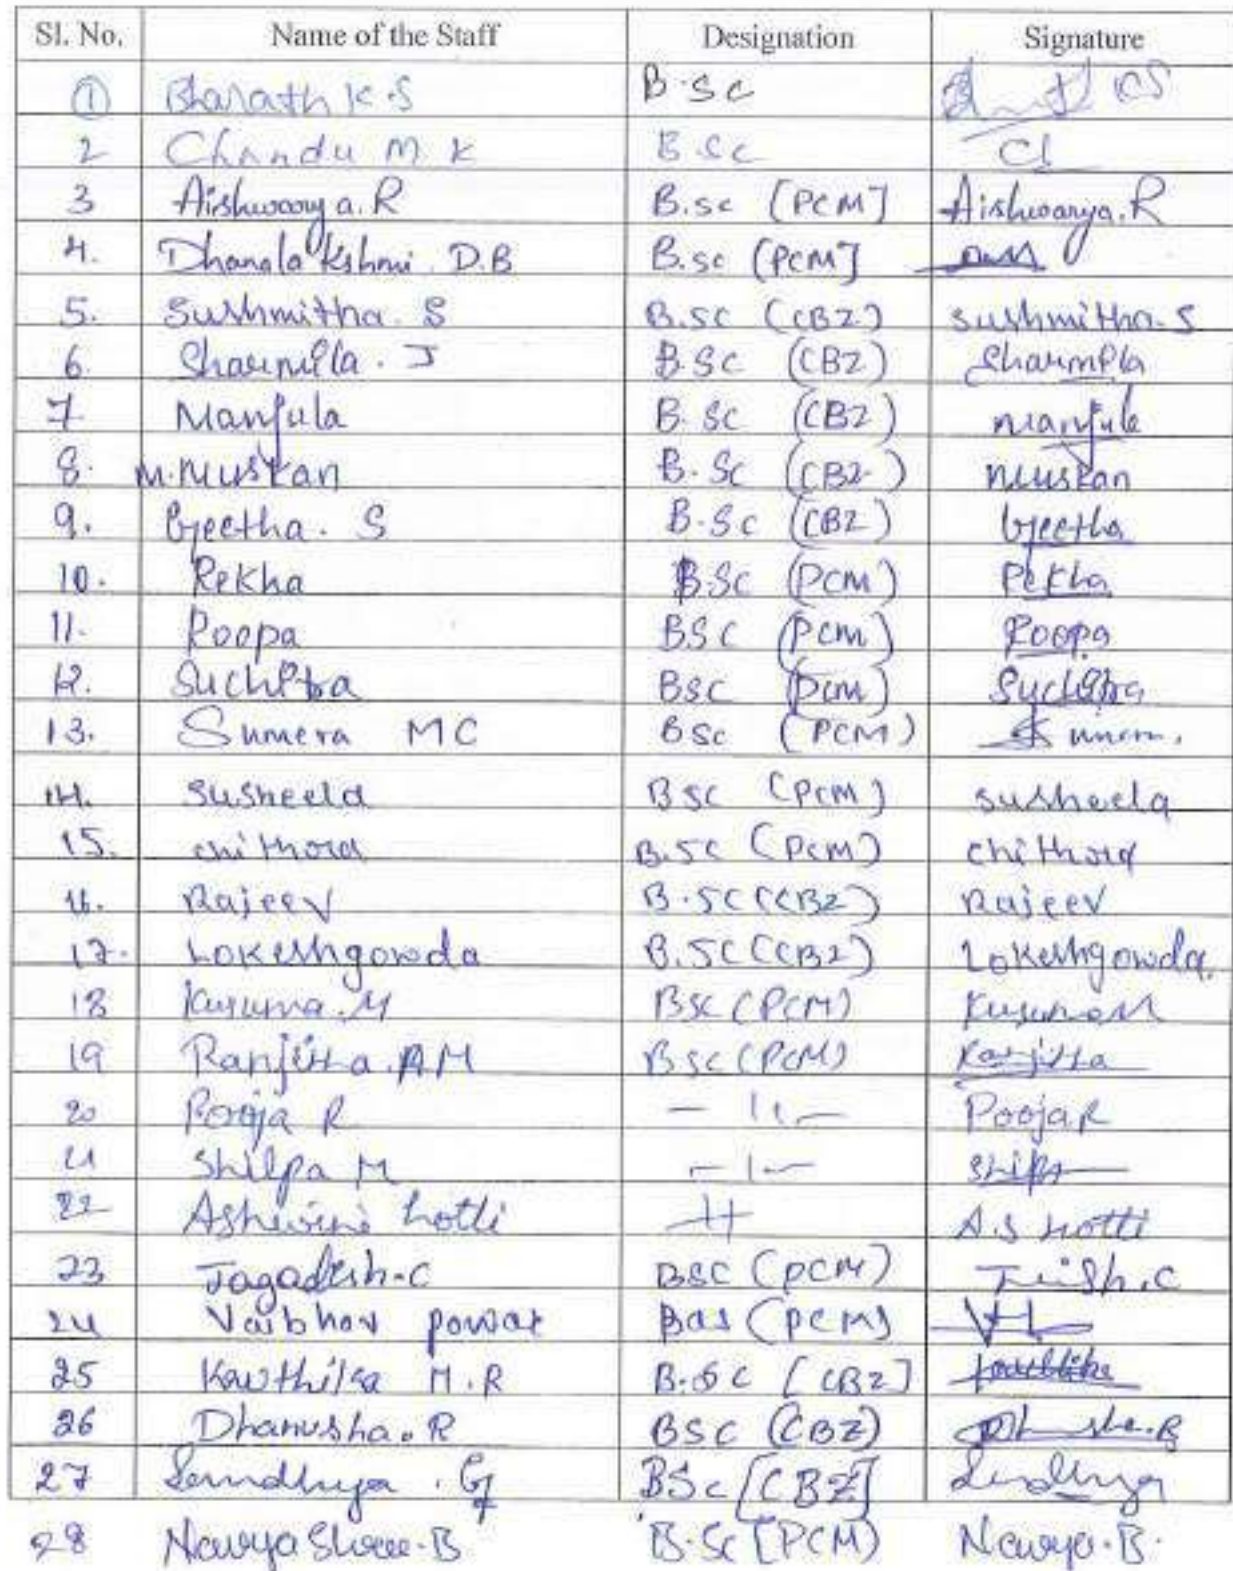 Sl. No. Name of the Staff Designation Signature
1 Bharath K.S B.Sc
2 Chandu M K B.Sc
3 Aishwarya.R B.sc [PCM] Aishwarya.R
4. Dhanalakshmi D.B B.sc (PCM]
5. Sushmitha. S B.SC (CBZ) sushmitha.S
6. Sharmila. J B.SC (CBZ) Sharmila
7 Manjula B.SC (CBZ) Manjula
8. M.Muskan B.Sc (CBZ) Muskan
9. Geetha. S B.Sc (CBZ) Geetha
10. Rekha B.Sc (PCM) Rekha
11. Roopa BSC (PCM) Roopa
12. Suchitra BSC (PCM) Suchitra
13. Sumera MC BSc (PCM)
14. Susheela BSC (PCM) susheela
15. chithora B.SC (PCM) chithora
16. Rajeev B.SC (CBZ) Rajeev
17. Lokeshgowda B.SC (CBZ) Lokeshgowda.
18 Kusuma.M BSc (PCM) KusumaM
19 Ranjitha.AM BSC (PCM) Ranjitha
20 Pooja R — 11 — Pooja R
21 Shilpa M — 1 — Shilpa
22 Ashwini hotti A.S hotti
23 Jagadish.C BSC (PCM)
24 Vaibhav powar BAS (PCM)
25 Kauthika M.R B.Sc [CBZ]
26 Dhanusha.R BSC (CBZ)
27 Sandhya .G BSc [CBZ] Sandhya
28 NavyaShree.B B.Sc [PCM) Navya.B.